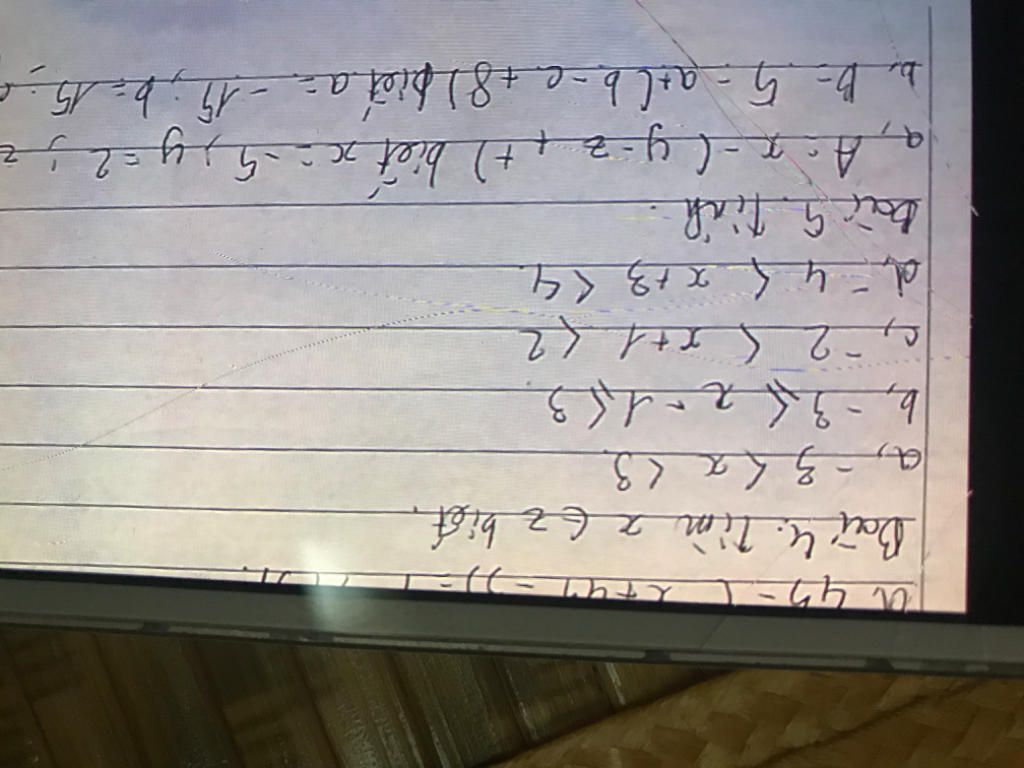 d 45 - ( x + 4
Bài 4. Tìm x ∈ z biết.
a, -3 < x < 3
b, -3 ≤ x - 1 ≤ 3
c, -2 < x + 1 < 2
d, -4 < x + 3 < 4
Bài 5. Tính
a, A = x - ( y - z + t ) biết x = -5 ; y = 2 ; z
b, B = 5 - a + ( b - c + 8 ) biết a = -15 ; b = 15 ; c